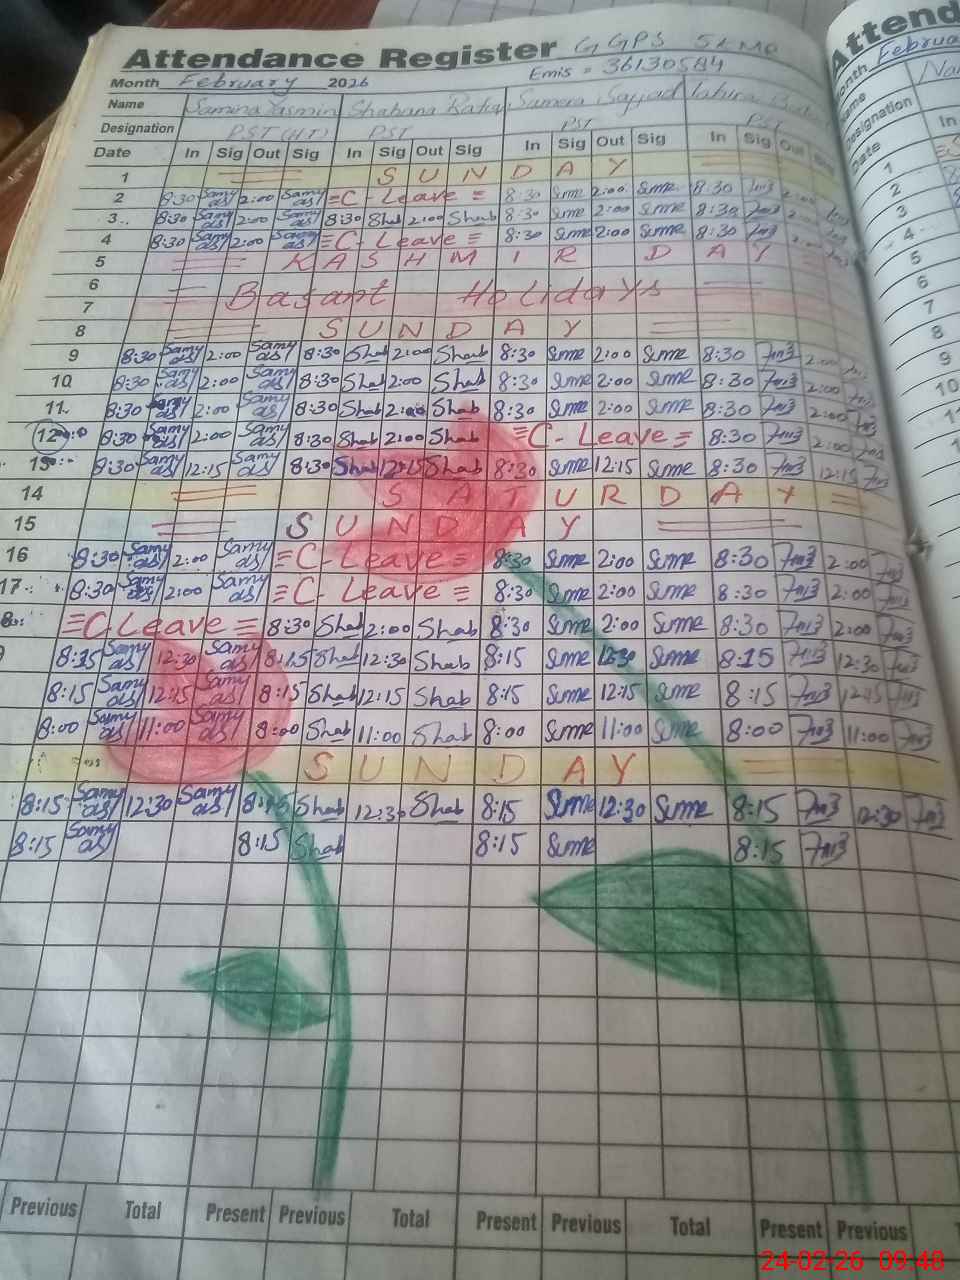 Attendance Register GGPS 5L MP
Month February 2026 Emis = 36130584
Name Samina Yasmin Shabana Samera Sajjad Tahira
Designation PST (HT) PST PST PST
Date In Sig Out Sig In Sig Out Sig In Sig Out Sig In Sig Out Sig
1 SUNDAY
2 8:30 Samyas 2:00 Samyas C-Leave 8:30 Sume 2:00 Sume 8:30 2:00
3 8:30 Samyas 2:00 Samyas 8:30 Shab 2:00 Shab 8:30 Sume 2:00 Sume 8:30 2:00
4 8:30 Samyas 2:00 Samyas C-Leave 8:30 Sume 2:00 Sume 8:30 2:00
5 KASHMIR DAY
6 Basant Holidays
7
8 SUNDAY
9 8:30 Samyas 2:00 Samyas 8:30 Shab 2:00 Shab 8:30 Sume 2:00 Sume 8:30 2:00
10 8:30 Samyas 2:00 Samyas 8:30 Shab 2:00 Shab 8:30 Sume 2:00 Sume 8:30 2:00
11 8:30 Samyas 2:00 Samyas 8:30 Shab 2:00 Shab 8:30 Sume 2:00 Sume 8:30 2:00
12 8:30 Samyas 2:00 Samyas 8:30 Shab 2:00 Shab C-Leave 8:30 2:00
13 8:30 Samyas 12:15 Samyas 8:30 Shab 12:15 Shab 8:30 Sume 12:15 Sume 8:30 12:15
14 SATURDAY
15 SUNDAY
16 8:30 Samyas 2:00 Samyas C-Leave 8:30 Sume 2:00 Sume 8:30 2:00
17 8:30 Samyas 2:00 Samyas C-Leave 8:30 Sume 2:00 Sume 8:30 2:00
8 C-Leave 8:30 Shab 2:00 Shab 8:30 Sume 2:00 Sume 8:30 2:00
8:15 Samyas 12:30 Samyas 8:15 Shab 12:30 Shab 8:15 Sume 12:30 Sume 8:15 12:30
8:15 Samyas 12:15 Samyas 8:15 Shab 12:15 Shab 8:15 Sume 12:15 Sume 8:15 12:15
8:00 Samyas 11:00 Samyas 8:00 Shab 11:00 Shab 8:00 Sume 11:00 Sume 8:00 11:00
SUNDAY
8:15 Samyas 12:30 Samyas 8:15 Shab 12:30 Shab 8:15 Sume 12:30 Sume 8:15 12:30
8:15 Samyas 8:15 Shab 8:15 Sume 8:15
Previous Total Present Previous Total Present Previous Total Present Previous
24-02-26 09:48
Attend
Month February
Name
Designation
Date In
1
2
3
4
5
6
7
8
9
10